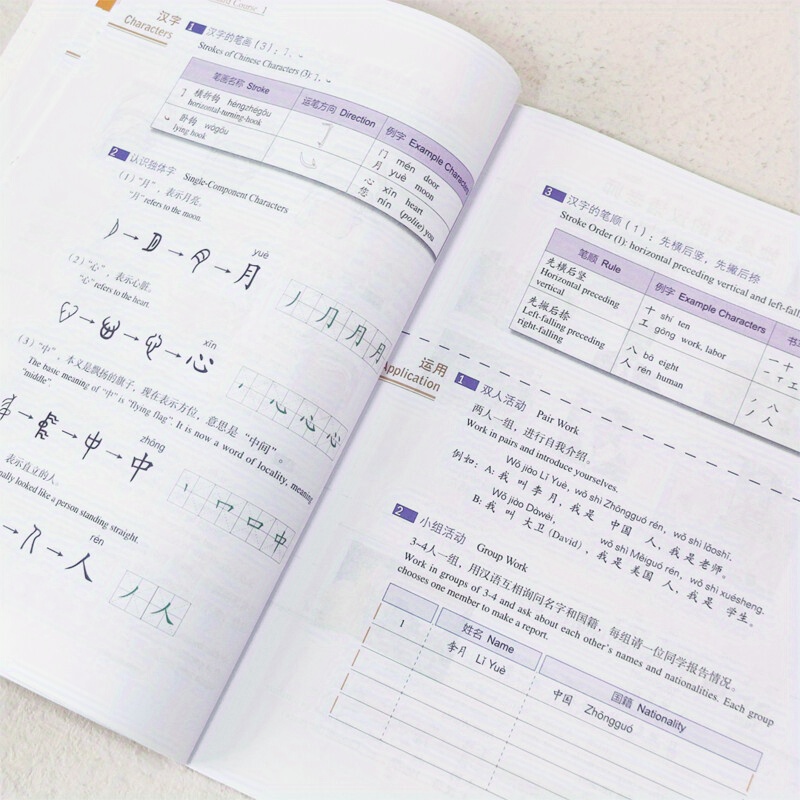 Course 1
汉字
Characters
1 汉字的笔画（3）：㇆、㇃
Strokes of Chinese Characters (3): ㇆、㇃
笔画名称 Stroke 运笔方向 Direction 例字 Example Characters
㇆ 横折钩 héngzhégōu
horizontal-turning-hook
门 mén door
月 yuè moon
㇃ 卧钩 wògōu
lying hook
心 xīn heart
您 nín (polite) you
2 认识独体字 Single-Component Characters
（1）“月”，表示月亮。
“月” refers to the moon.
yuè
→ → → 月
丿 ⺆ 月 月
（2）“心”，表示心脏。
“心” refers to the heart.
xīn
→ → → 心
心 心 心
（3）“中”，本义是飘扬的旗子，现在表示方位，意思是“中间”。
The basic meaning of “中” is “flying flag”. It is now a word of locality, meaning
“middle”.
zhōng
→ → 中 → 中
丨 口 口 中
表示直立的人。
nally looked like a person standing straight.
rén
→ → 人
丿 人
3 汉字的笔顺（1）：先横后竖，先撇后捺
Stroke Order (1): horizontal preceding vertical and left-fall
笔顺 Rule 例字 Example Characters 书
先横后竖
Horizontal preceding
vertical
十 shí ten
工 gōng work, labor
一 十
一 丅 工
先撇后捺
Left-falling preceding
right-falling
八 bā eight
人 rén human
丿 八
丿 人
运用
Application
1 双人活动 Pair Work
两人一组，进行自我介绍。
Work in pairs and introduce yourselves.
Wǒ jiào Lǐ Yuè, wǒ shì Zhōngguó rén, wǒ shì lǎoshī.
例如：A: 我 叫 李 月，我 是 中国 人，我 是 老师。
Wǒ jiào Dàwèi, wǒ shì Měiguó rén, wǒ shì xuésheng.
B: 我 叫 大卫（David），我 是 美国 人，我 是 学生。
2 小组活动 Group Work
3-4人一组，用汉语互相询问名字和国籍，每组请一位同学报告情况。
Work in groups of 3-4 and ask about each other's names and nationalities. Each group
chooses one member to make a report.
姓名 Name 国籍 Nationality
1 李月 Lǐ Yuè 中国 Zhōngguó